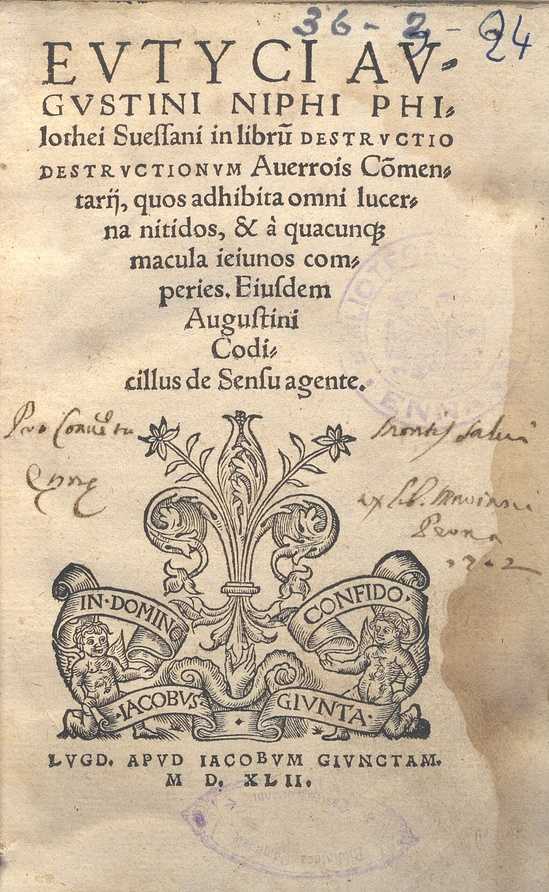 36-2-24
EVTYCI AV-
GVSTINI NIPHI PHI-
lothei Suessani in librũ DESTRVCTIO
DESTRVCTIONVM Auerrois Cõmen-
tarij, quos adhibita omni lucer-
na nitidos, & à quacunq;
macula ieiunos com-
peries. Eiusdem
Augustini
Codi-
cillus de Sensu agente.
IN·DOMINO
CONFIDO·
·IACOBVS·
GIVNTA·
LVGD. APVD IACOBVM GIVNCTAM.
M D. XLII.